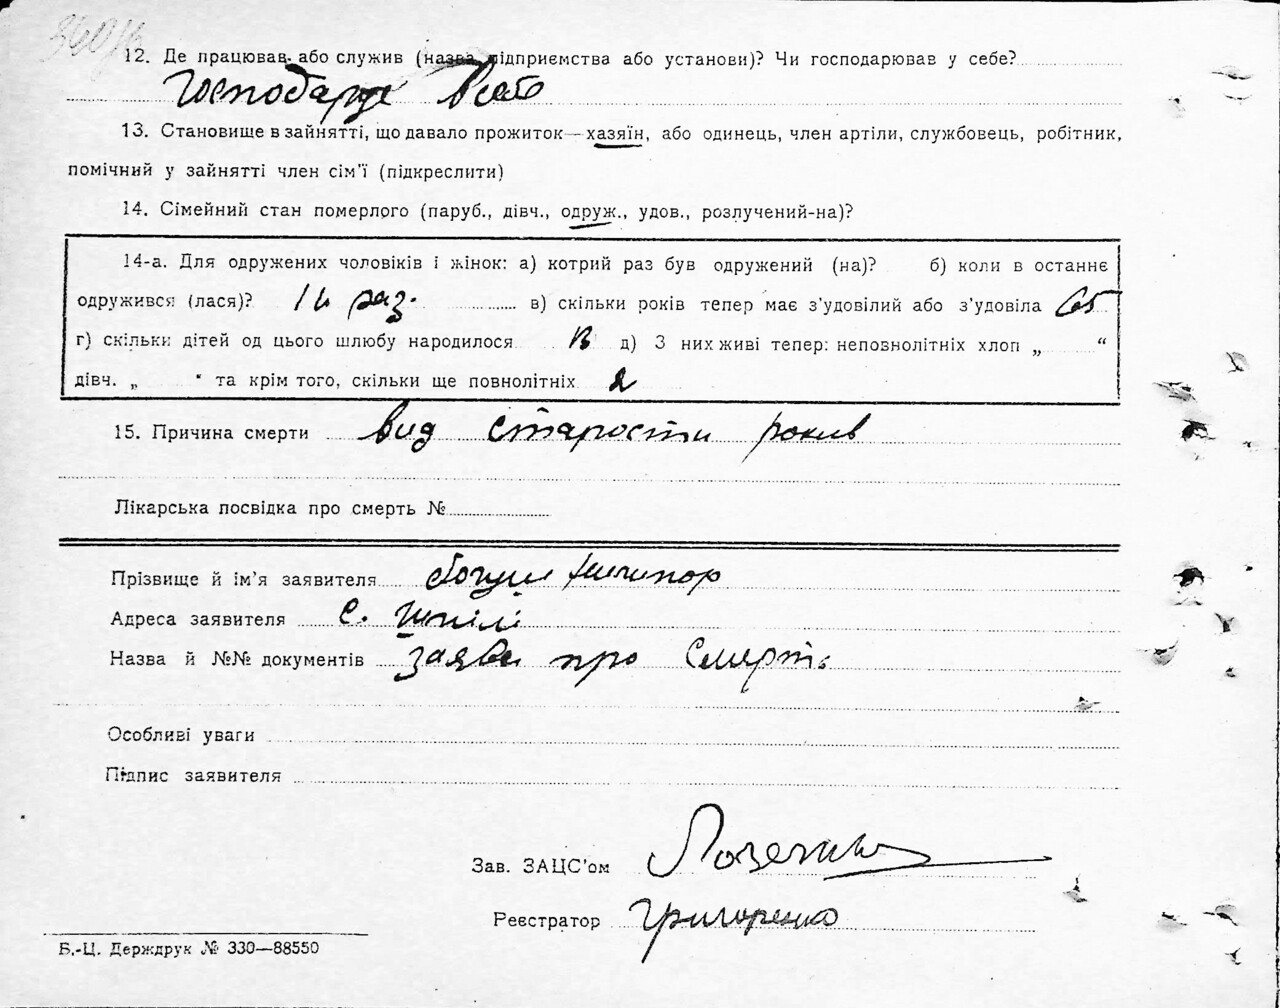 12. Де працював або служив (назва підприємства або установи)? Чи господарював у себе?
Господарює в себе
13. Становище в зайнятті, що давало прожиток—хазяїн, або одинець, член артіли, службовець, робітник,
помічний у зайнятті член сім'ї (підкреслити)
14. Сімейний стан померлого (паруб., дівч., одруж., удов., розлучений-на)?
14-а. Для одружених чоловіків і жінок: а) котрий раз був одружений (на)? б) коли в останнє
одружився (лася)? 1й раз. в) скільки років тепер має з'удовілий або з'удовіла 65
г) скільки дітей од цього шлюбу народилося д) З них живі тепер: неповнолітніх хлоп „ “
дівч. „ “ та крім того, скільки ще повнолітніх 2
15. Причина смерти вид старости рокив
Лікарська посвідка про смерть №
Прізвище й ім'я заявителя
Адреса заявителя с. Шпілі
Назва й №№ документів заява про смерть
Особливі уваги
Підпис заявителя
Зав. ЗАЦС'ом
Реєстратор Григоренко
Б.-Ц. Держдрук № 330—88550